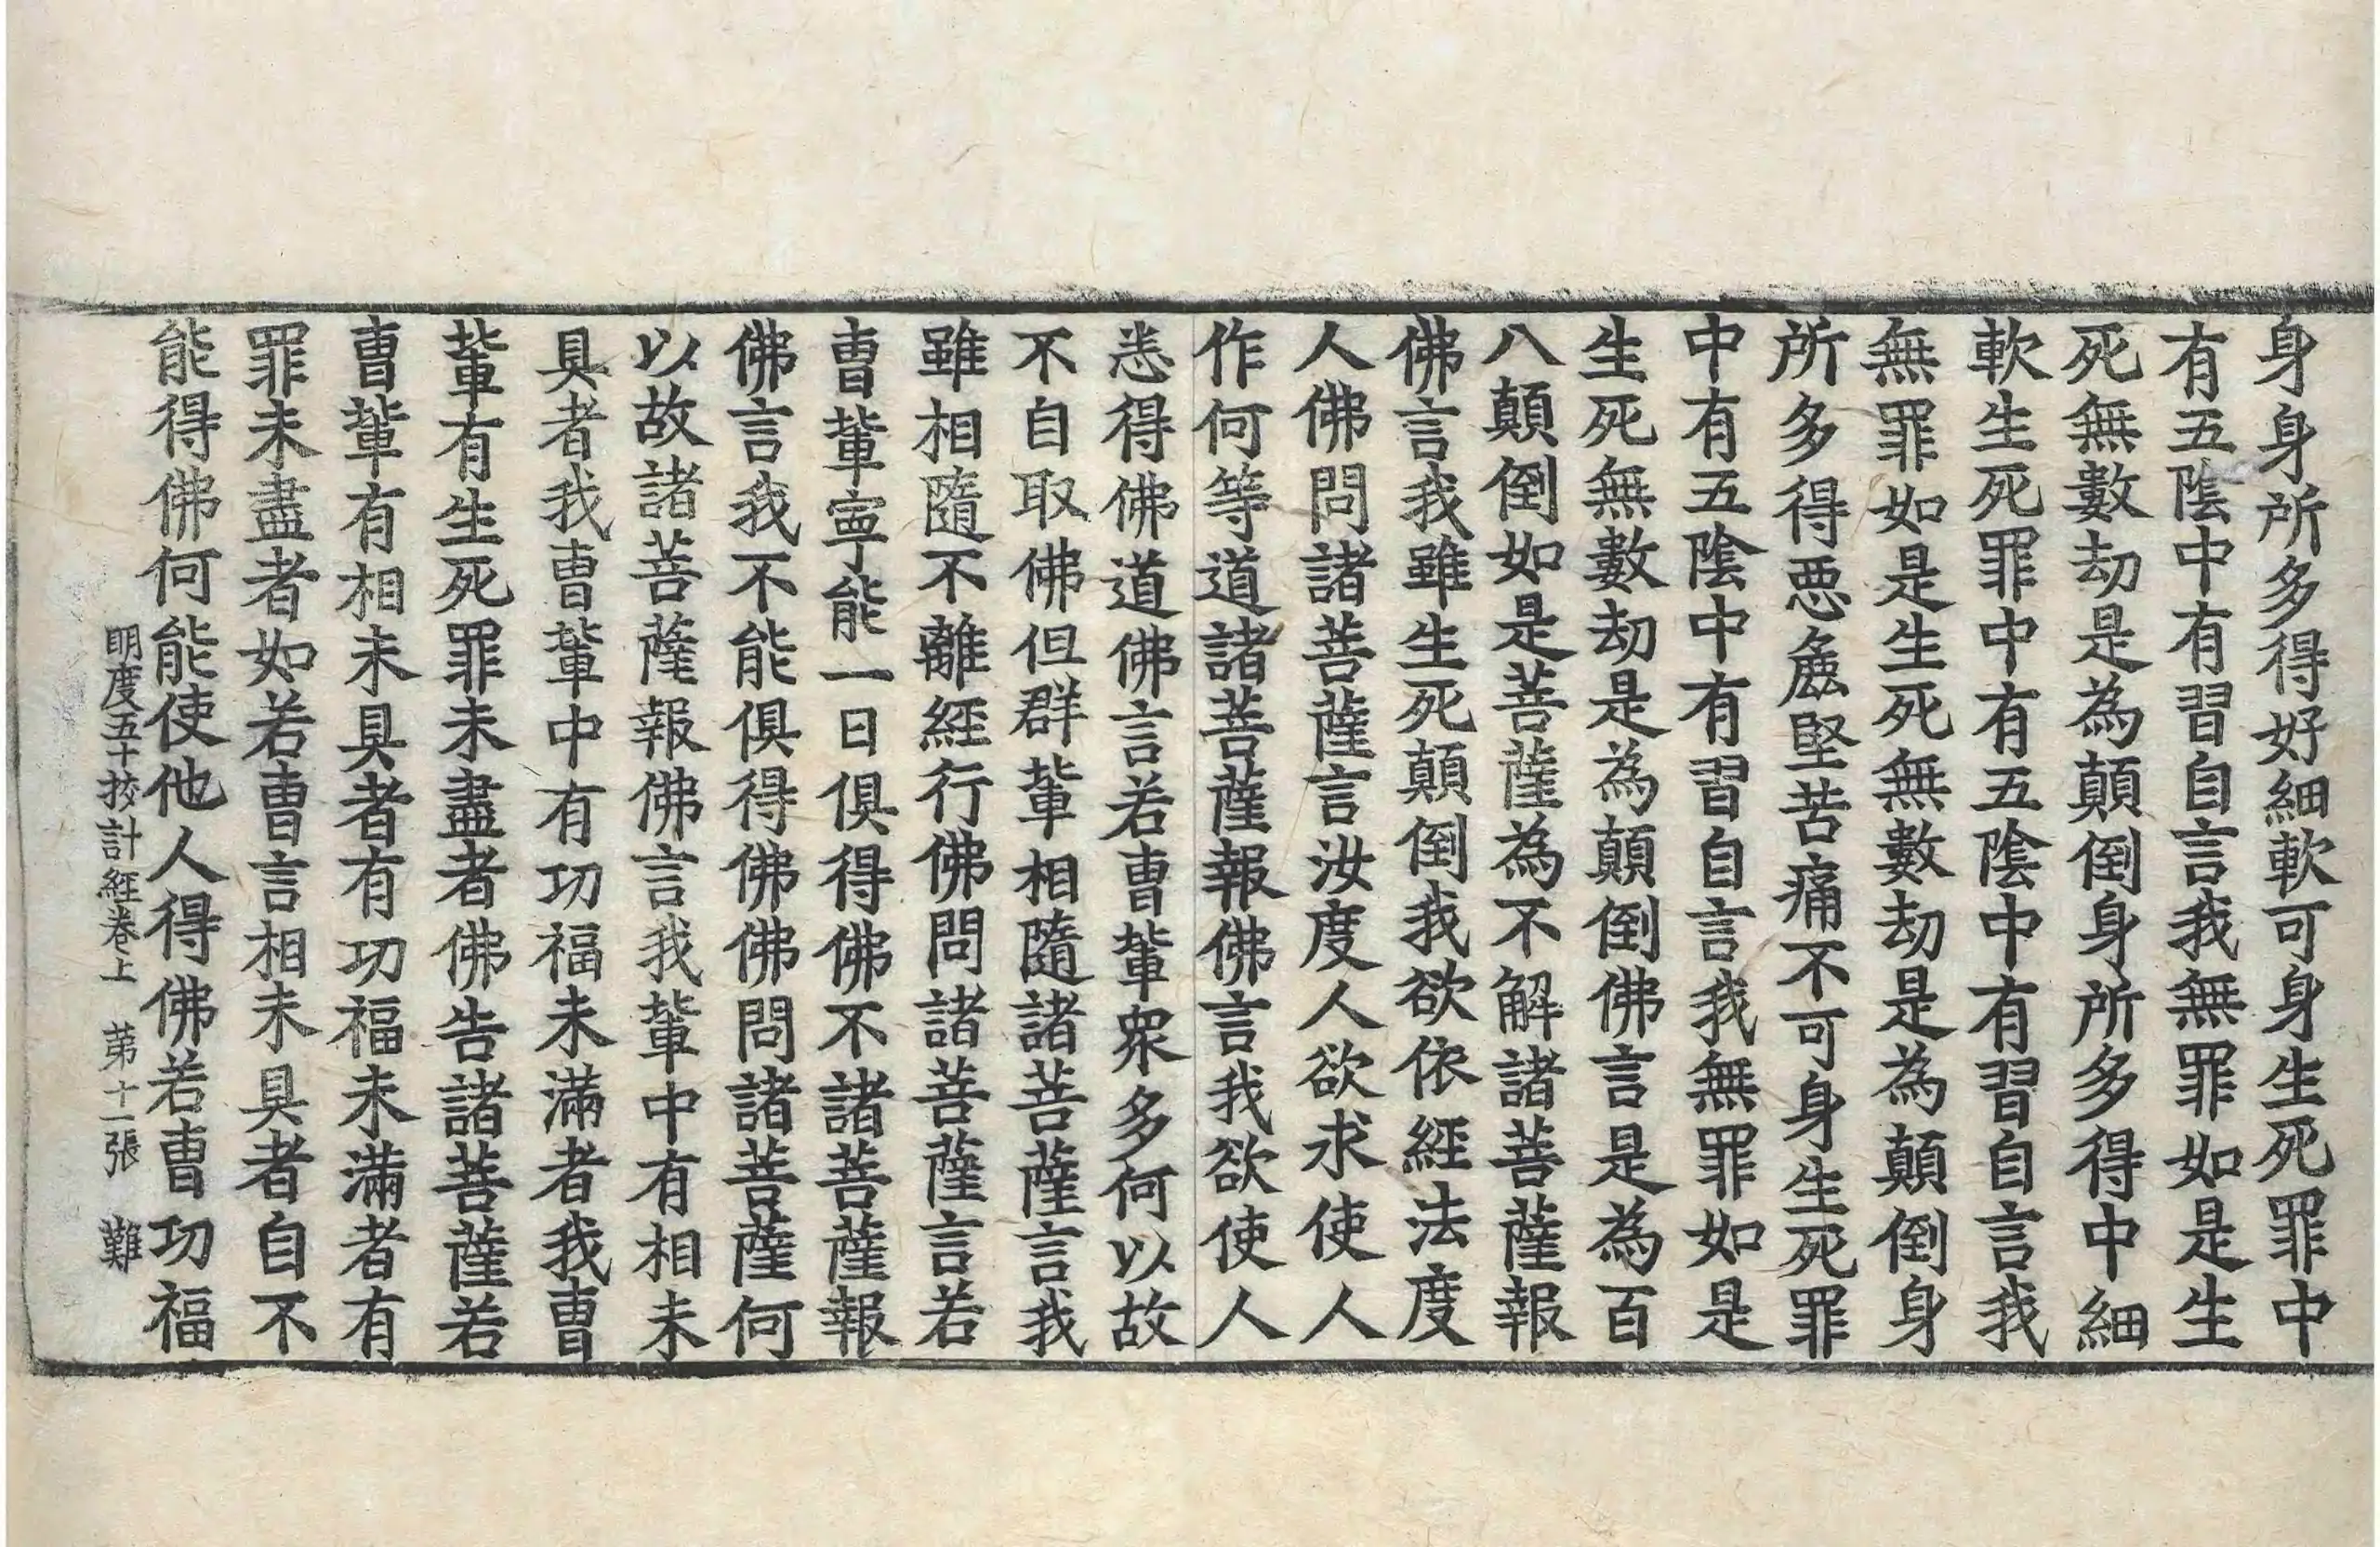 身身所多得好細軟可身生死罪中
有五陰中有習自言我無罪如是生
死無數劫是為顛倒身所多得中細
軟生死罪中有五陰中有習自言我
無罪如是生死無數劫是為顛倒身
所多得惡麁堅苦痛不可身生死罪
中有五陰中有習自言我無罪如是
生死無數劫是為顛倒佛言是為百
八顛倒如是菩薩為不解諸菩薩報
佛言我雖生死顛倒我欲依經法度
人佛問諸菩薩言汝度人欲求使人
作何等道諸菩薩報佛言我欲使人
悉得佛道佛言若曹輩衆多何以故
不自取佛但群輩相隨諸菩薩言我
雖相隨不離經行佛問諸菩薩言若
曹輩寧能一日俱得佛不諸菩薩報
佛言我不能俱得佛佛問諸菩薩何
以故諸菩薩報佛言我輩中有相未
具者我曹輩中有功福未滿者我曹
輩有生死罪未盡者佛告諸菩薩若
曹輩有相未具者有功福未滿者有
罪未盡者如若曹言相未具者自不
能得佛何能使他人得佛若曹功福
明度五十挍計經卷上　苐十二張　難